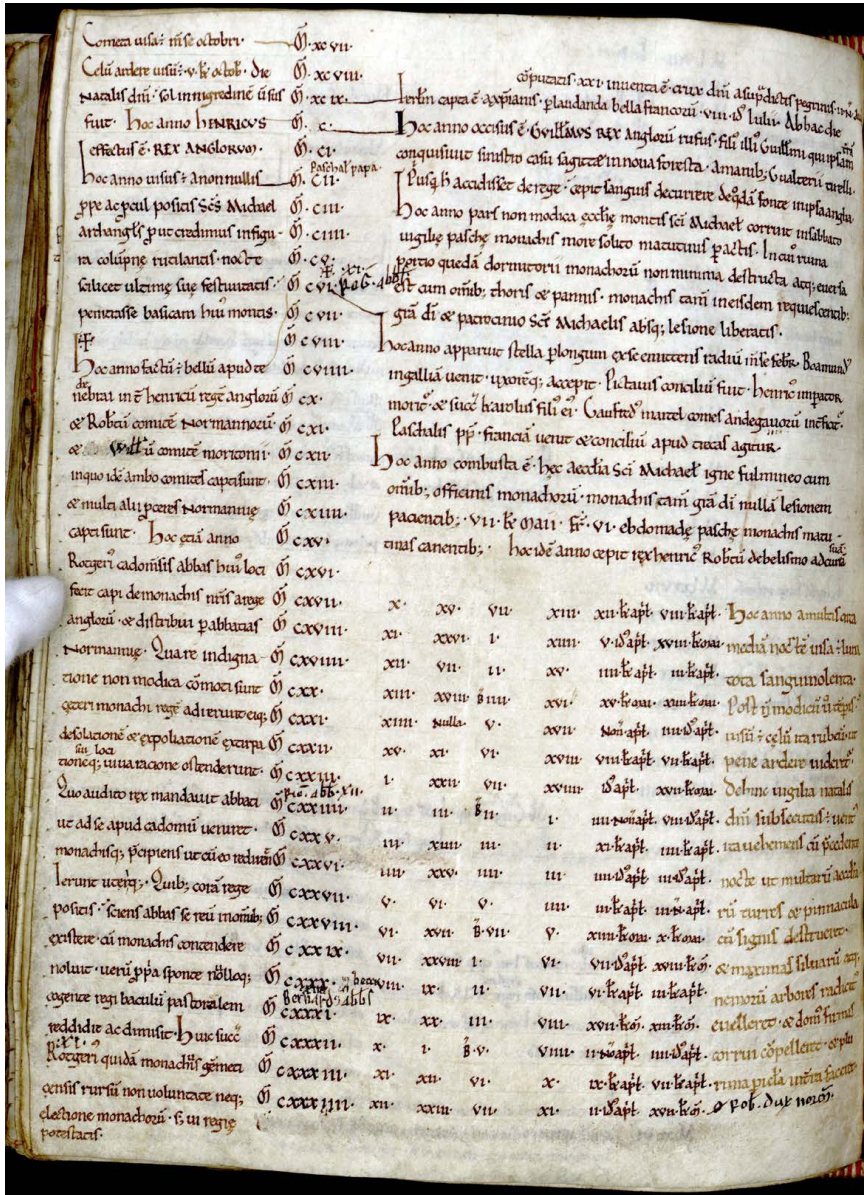 Cometa uisa ÷ mse octobri.
Celū ardere uisū ÷ .v. kl̄ octob. Die
Natalis dn̄i. sol innigredinē ūsus
fuit. hoc anno hENRICVS
effectus ē. REX ANGLORVM.
hoc anno uisus ÷ anonnullis
ꝓpe ac ꝓcul positis Scs̄ Michael
archangl̄s ꝓut credimus infigu-
ra colūpnę rutilantis. nocte
scilicet ultimę suę festiuitatis.
penitrasse basilicam hui᷒ montis.
hoc anno factū ÷ bellū apud te
nebrai int̄ henricū regē anglorū
⁊ Rotb̄tū comitē Normannorū
⁊ Will̄ū comitē moritonii
inquo idē ambo comites capti sunt
⁊ multi alii ꝓceres Normannię
capti sunt. hoc etiā anno
Rotgeri᷒ cadom̄sis abbas hui᷒ loci
fecit capi de monachis nr̄is a rege
anglorū. ⁊ distribui ꝑ abbatias
Normannię. Quare indigna-
tione non modica cōmoti sunt
cęteri monachi regē adierunt eiq;
desolationē ⁊ expoliationē extirpa
sui loci
tionēq; uiua racione ostenderunt.
Quo audito rex mandauit abbati
ut ad se apud cadomū ueniret.
monachisq; p̄cipiens ut cū eo redirent
Ierunt uterq;. Quib; corā rege
positis. sciens abbas se reū in omīb;
existere. cū monachis contendere
noluit. uerū ꝓpria sponte nōlloq;
cogente regi baculū pastoralem
reddidit ac dimisit. huic succ̄
Rotgeri᷒ quidā monach᷒ gēmeti
censis rursū non uoluntate neq;
electione monachorū. s; ui regię
potestatis.
M̄. xc vii.
M̄. xc viii.
M̄. xc ix.
M̄. c.
M̄. ci.
Paschal papa
M̄. cii.
M̄. ciii.
M̄. ciiii.
M̄. cv.
M̄ cvi.
M̄ cvii.
M̄ cviii.
M̄ cviiii.
M̄ cx.
M̄ cxi.
M̄ cxii.
M̄ cxiii.
M̄ cxiiii.
M̄ cxv.
M̄ cxvi.
M̄ cxvii.
M̄ cxviii.
M̄ cxviiii.
M̄ cxx.
M̄ cxxi.
M̄ cxxii.
M̄ cxxiii.
M̄ cxxiiii.
M̄ cxxv.
M̄ cxxvi.
M̄ cxxvii.
M̄ cxxviii.
M̄ cxxix.
M̄ cxxx.
Bernard᷒ abb̄s
M̄ cxxxi.
M̄ cxxxii.
M̄ cxxxiii.
M̄ cxxxiiii.
cōputatis .xxi. inuenta ē. crux dn̄i a sup̄dictis pegrinis
Ierl̄m capta ē. a xp̄ianis. ꝑ laudanda bella francorū. viii. id᷒ Iulii.
hoc anno occisus ē. Guill̄mus REX anglorū rufus. fili᷒ illi᷒ Guill̄mi qui ipsam
conquisiuit sinistro casu sagittę in noua foresta. a manib; Gualterii tirelli.
Pusq̄ h̄ accidisset de rege. cępit sanguis decurrere de q̄dā fonte in ipsa anglia
hoc anno pars non modica ęcclię montis sc̄i Michael corruit in sabbato
uigilię paschę monachis more solito matutinis ꝑactis. In cui᷒ ruina
portio quedā dormitorii monachorū non minima destructa atq; euersa
est cum om̄ib; thoris ⁊ pannis. monachis tam̄ in eisdem requiescentib;
gr̄a dī ⁊ patrocinio Scī Michaelis absq; lesione liberatis.
hoc anno apparuit stella ꝑ longum ex se emittens radiū m̄se febr̄. Boamund᷒
in galliā uenit. uxorēq; accepit. Pictauis conciliū fuit. henric᷒ imꝑator
morit᷒. ⁊ succ̄ karolus fili᷒ ei᷒. Gaufrid᷒ martel comes andegauorū int̄ficit᷒.
Paschalis pp̄. franciā uenit ⁊ conciliū apud trecas agitur.
hoc anno combusta ē. hęc aecclia Sci Michael igne fulmineo cum
om̄ib; officinis monachorū. monachis tam̄ gr̄a dī nullā lesionem
pacientib;. vii. kl̄ maii. fr̄. vi. ebdomadę paschę monachis matu-
tinas canentib;. hoc idē anno cepit rex henric᷒ Rotb̄tū
x. xv. vii. xiii. xii.kl̄ apl̄. viii.kl̄ apl̄.
xi. xxvi. i. xiiii. v.id᷒ apl̄. xviii.kl̄ mai.
xii. vii. ii. xv. iiii.kl̄ apl̄. iii.kl̄ apl̄.
xiii. xviii. B iiii. xvi. xv.kl̄ mai. xiiii.kl̄ mai.
xiiii. Nulla. v. xvii. Noñ apl̄. iiii.id᷒ apl̄.
xv. xi. vi. xviii. viii.kl̄ apl̄. vii.kl̄ apl̄.
i. xxii. vii. xviiii. id᷒ apl̄. xvii.kl̄ mai.
ii. iii. B ii. i. iiii.Noñ apl̄. viii.id᷒ apl̄.
iii. xiiii. iii. ii. xi.kl̄ apl̄. iiii.kl̄ apl̄.
iiii. xxv. iiii. iii. iiii.id᷒ apl̄. iii.id᷒ apl̄.
v. vi. v. iiii. iii.kl̄ apl̄. iii.ñ apl̄.
vi. xvii. B. vii. v. xiiii.kl̄ mai. x.kl̄ mai.
vii. xxviii. i. vi. vii.id᷒ apl̄. xviii.kl̄ m̄.
viii. ix. ii. vii. vi.kl̄ apl̄. iii.kl̄ apl̄.
ix. xx. iii. viii. xvii.kl̄ m̄. xiii.kl̄ m̄.
x. i. B. v. viiii. ii.noñ apl̄. iiii.id᷒ apl̄.
xi. xii. vi. x. ix.kl̄ apl̄. vii.kl̄ apl̄.
xii. xxiii. vii. xi. ii.id᷒ apl̄. xvii.kl̄ m̄.
hoc anno a multis circa
mediā noctē uisa ÷ luna
tota sanguinolenta.
Post n̄ modicū ū tēpis
uisū ÷ cęlū ita rubeū. ut
pene ardere uideret᷒.
Dehinc uigilia natalis
dn̄i subsecutus ÷ uent᷒
ita uehemens cū p̄cedenti
nocte ut multarū aecclia
rū turres ⁊ pinnacula
cū signis destrueret.
⁊ maximas siluarū atq;
nemorū arbores radicit᷒
euelleret. ⁊ dom᷒ firmas
corrui cōpelleret.
⁊ Rob̄. dux norm̄.